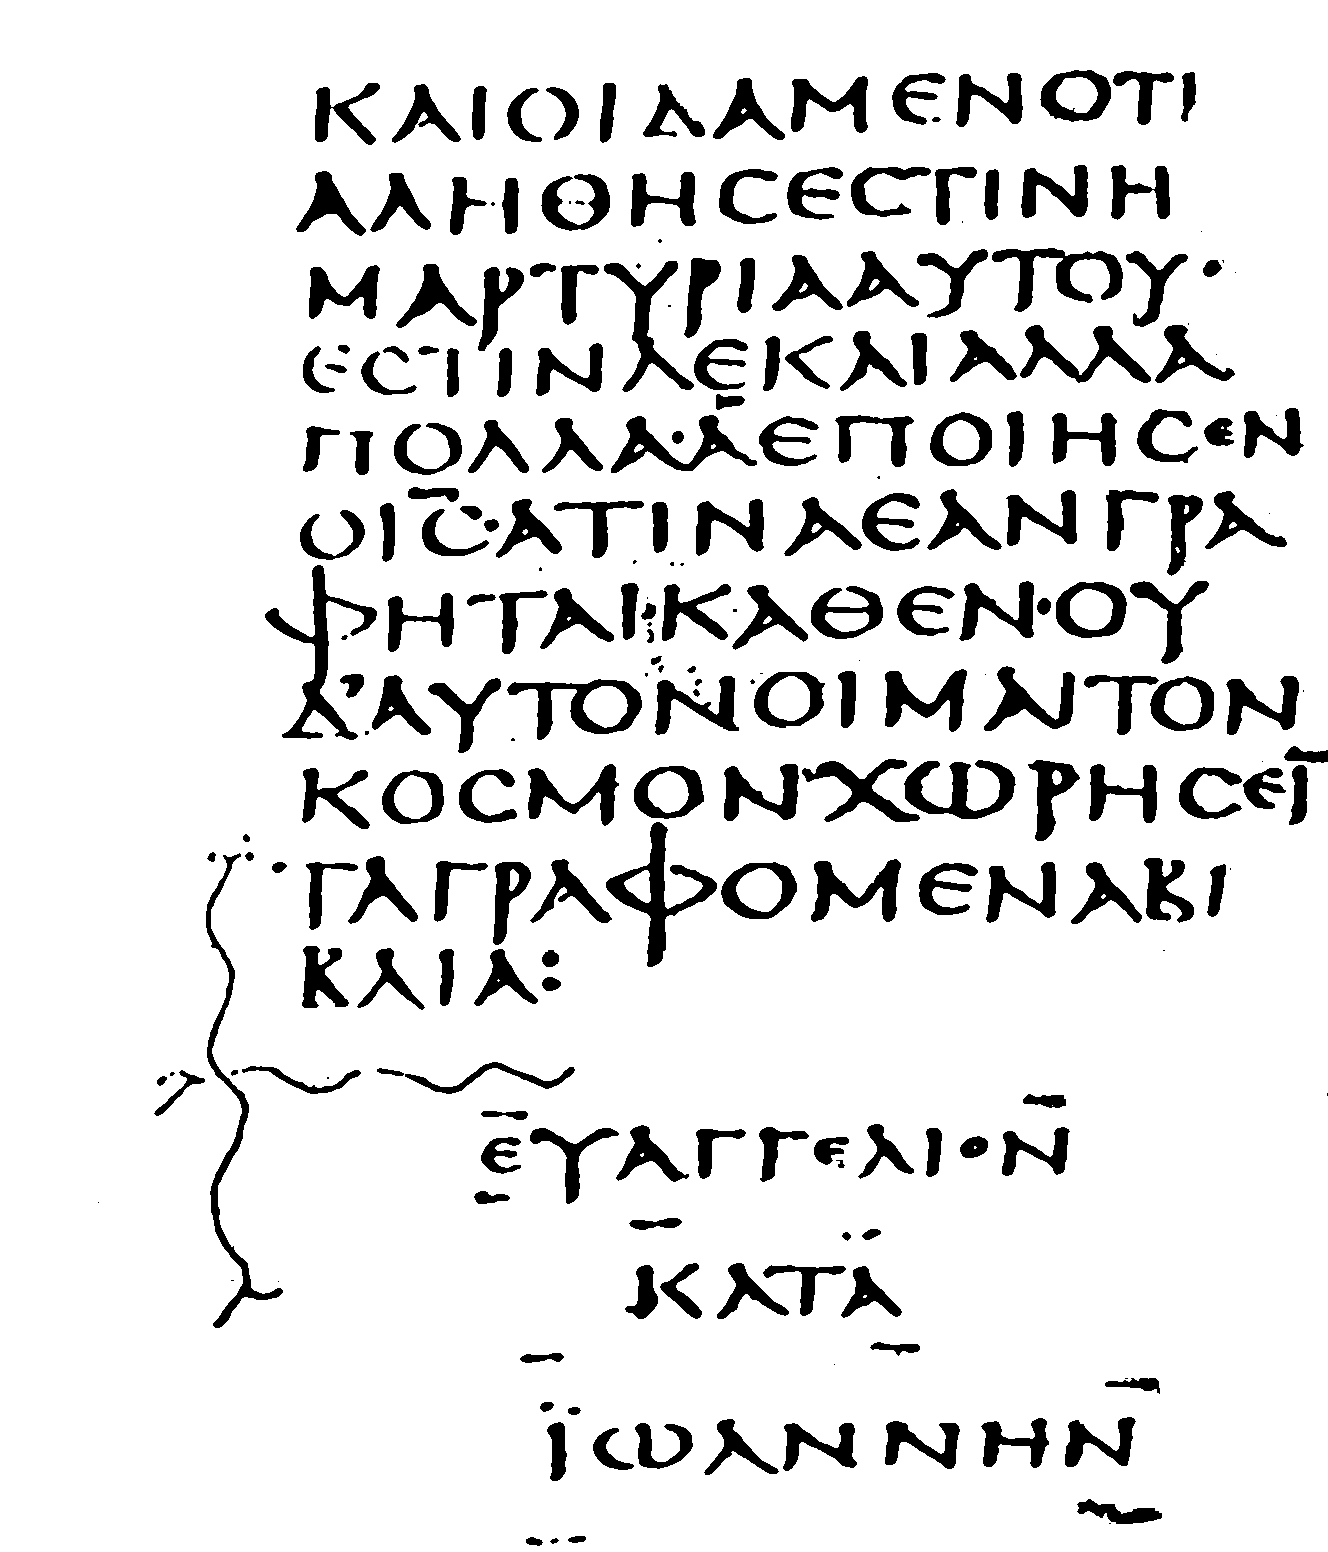 ΚΑΙΟΙΔΑΜΕΝΟΤΙ
ΑΛΗΘΗϹΕϹΤΙΝΗ
ΜΑΡΤΥΡΙΑΑΥΤΟΥ·
ΕϹΤΙΝΔΕΚΑΙΑΛΛΑ
ΠΟΛΛΑ·ΑΕΠΟΙΗϹΕΝ
ΟΙ̅Ϲ̅·ΑΤΙΝΑΕΑΝΓΡΑ
ΦΗΤΑΙ·ΚΑΘΕΝ·ΟΥ
Δ’ΑΥΤΟΝΟΙΜΑΙΤΟΝ
ΚΟϹΜΟΝ’ΧΩΡΗϹΕΙ̅
ΤΑΓΡΑΦΟΜΕΝΑΒΙ
ΒΛΙΑ:
ΕΥΑΓΓΕΛΙΟΝ
ΚΑΤΑ
ΪΩΑΝΝΗΝ